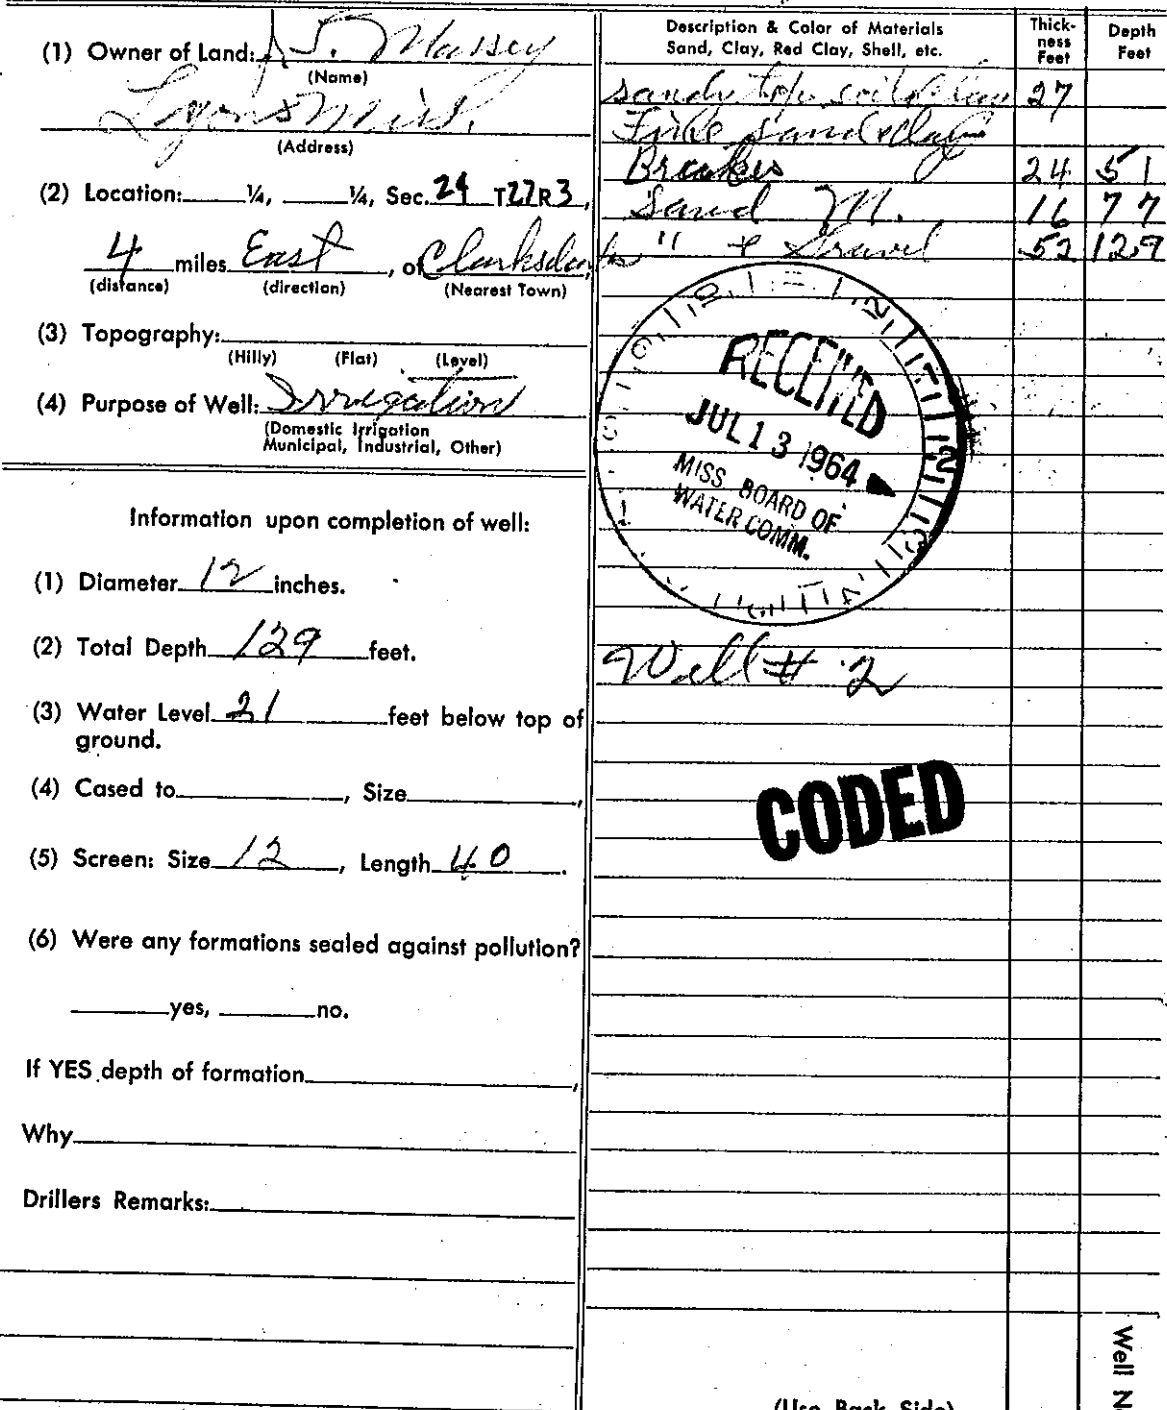 (1) Owner of Land: S. Massey
(Name)
Lyons Miss.
(Address)
(2) Location: ¼, ¼, Sec. 24 T27R3,
4 miles East, of Clarksdale
(distance) (direction) (Nearest Town)
(3) Topography:
(Hilly) (Flat) (Level)
(4) Purpose of Well: Irrigation
(Domestic Irrigation
Municipal, Industrial, Other)
Information upon completion of well:
(1) Diameter 12 inches.
(2) Total Depth 129 feet.
(3) Water Level 21 feet below top of
ground.
(4) Cased to , Size ,
(5) Screen: Size 12, Length 40.
(6) Were any formations sealed against pollution?
yes, no.
If YES depth of formation ,
Why
Drillers Remarks:
Description & Color of Materials
Sand, Clay, Red Clay, Shell, etc.
Thick-
ness
Feet
Depth
Feet
sandy top soil & clay 27
Fine sand & clay
Breakes 24 51
Sand M. 16 77
" & Gravel 52 129
RECEIVED
JUL 13 1964
MISS. BOARD OF
WATER COMM.
Well # 2
CODED
(Use Back Side)
Well N